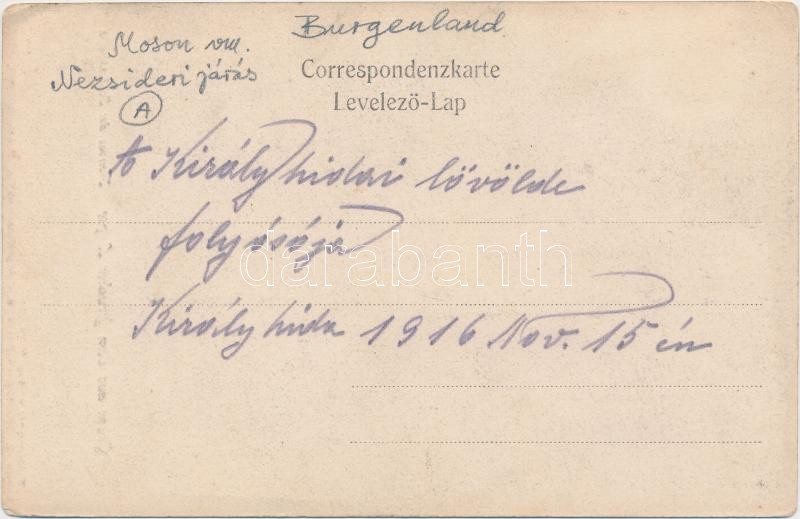 Burgenland
Moson vm.
Nezsideri járás
A
Correspondenzkarte
Levelező-Lap
A Királyhidai lövölde
folyósója
darabanth
Királyhida 1916 Nov. 15 én